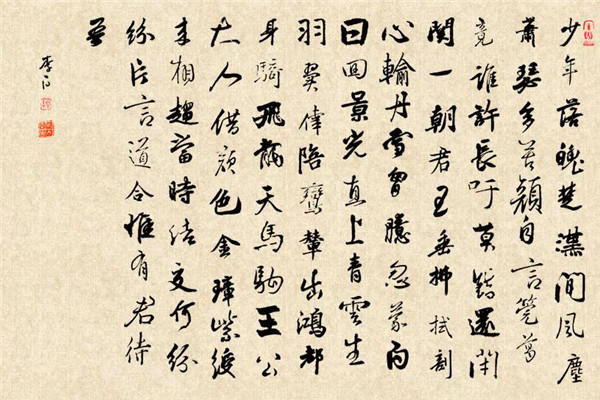 少年落魄楚漢間風塵
蕭瑟多苦顏自言筦葛
竟誰許長吁莫錯還閉
關一朝君王垂拂拭剖
心輸丹雪胷臆忽蒙白
日回景光直上青雲生
羽翼倖陪鸞輦出鴻都
身騎飛龍天馬駒王公
大人借顏色金璋紫綬
來相趨當時結交何紛
紛片言道合惟有君待
吾
李白